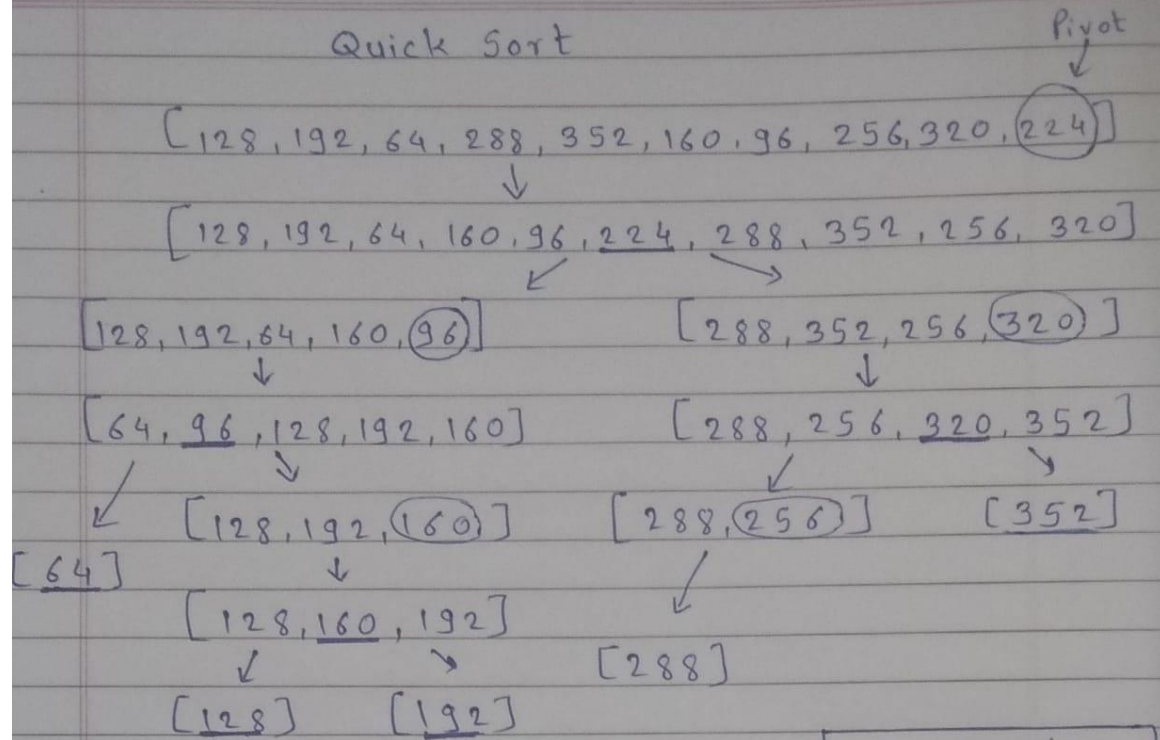 Quick Sort
Pivot
[128, 192, 64, 288, 352, 160, 96, 256, 320, 224]
[128, 192, 64, 160, 96, 224, 288, 352, 256, 320]
[128, 192, 64, 160, 96] [288, 352, 256, 320]
[64, 96, 128, 192, 160] [288, 256, 320, 352]
[128, 192, 160] [288, 256] [352]
[64]
[128, 160, 192]
[288]
[128] [192]